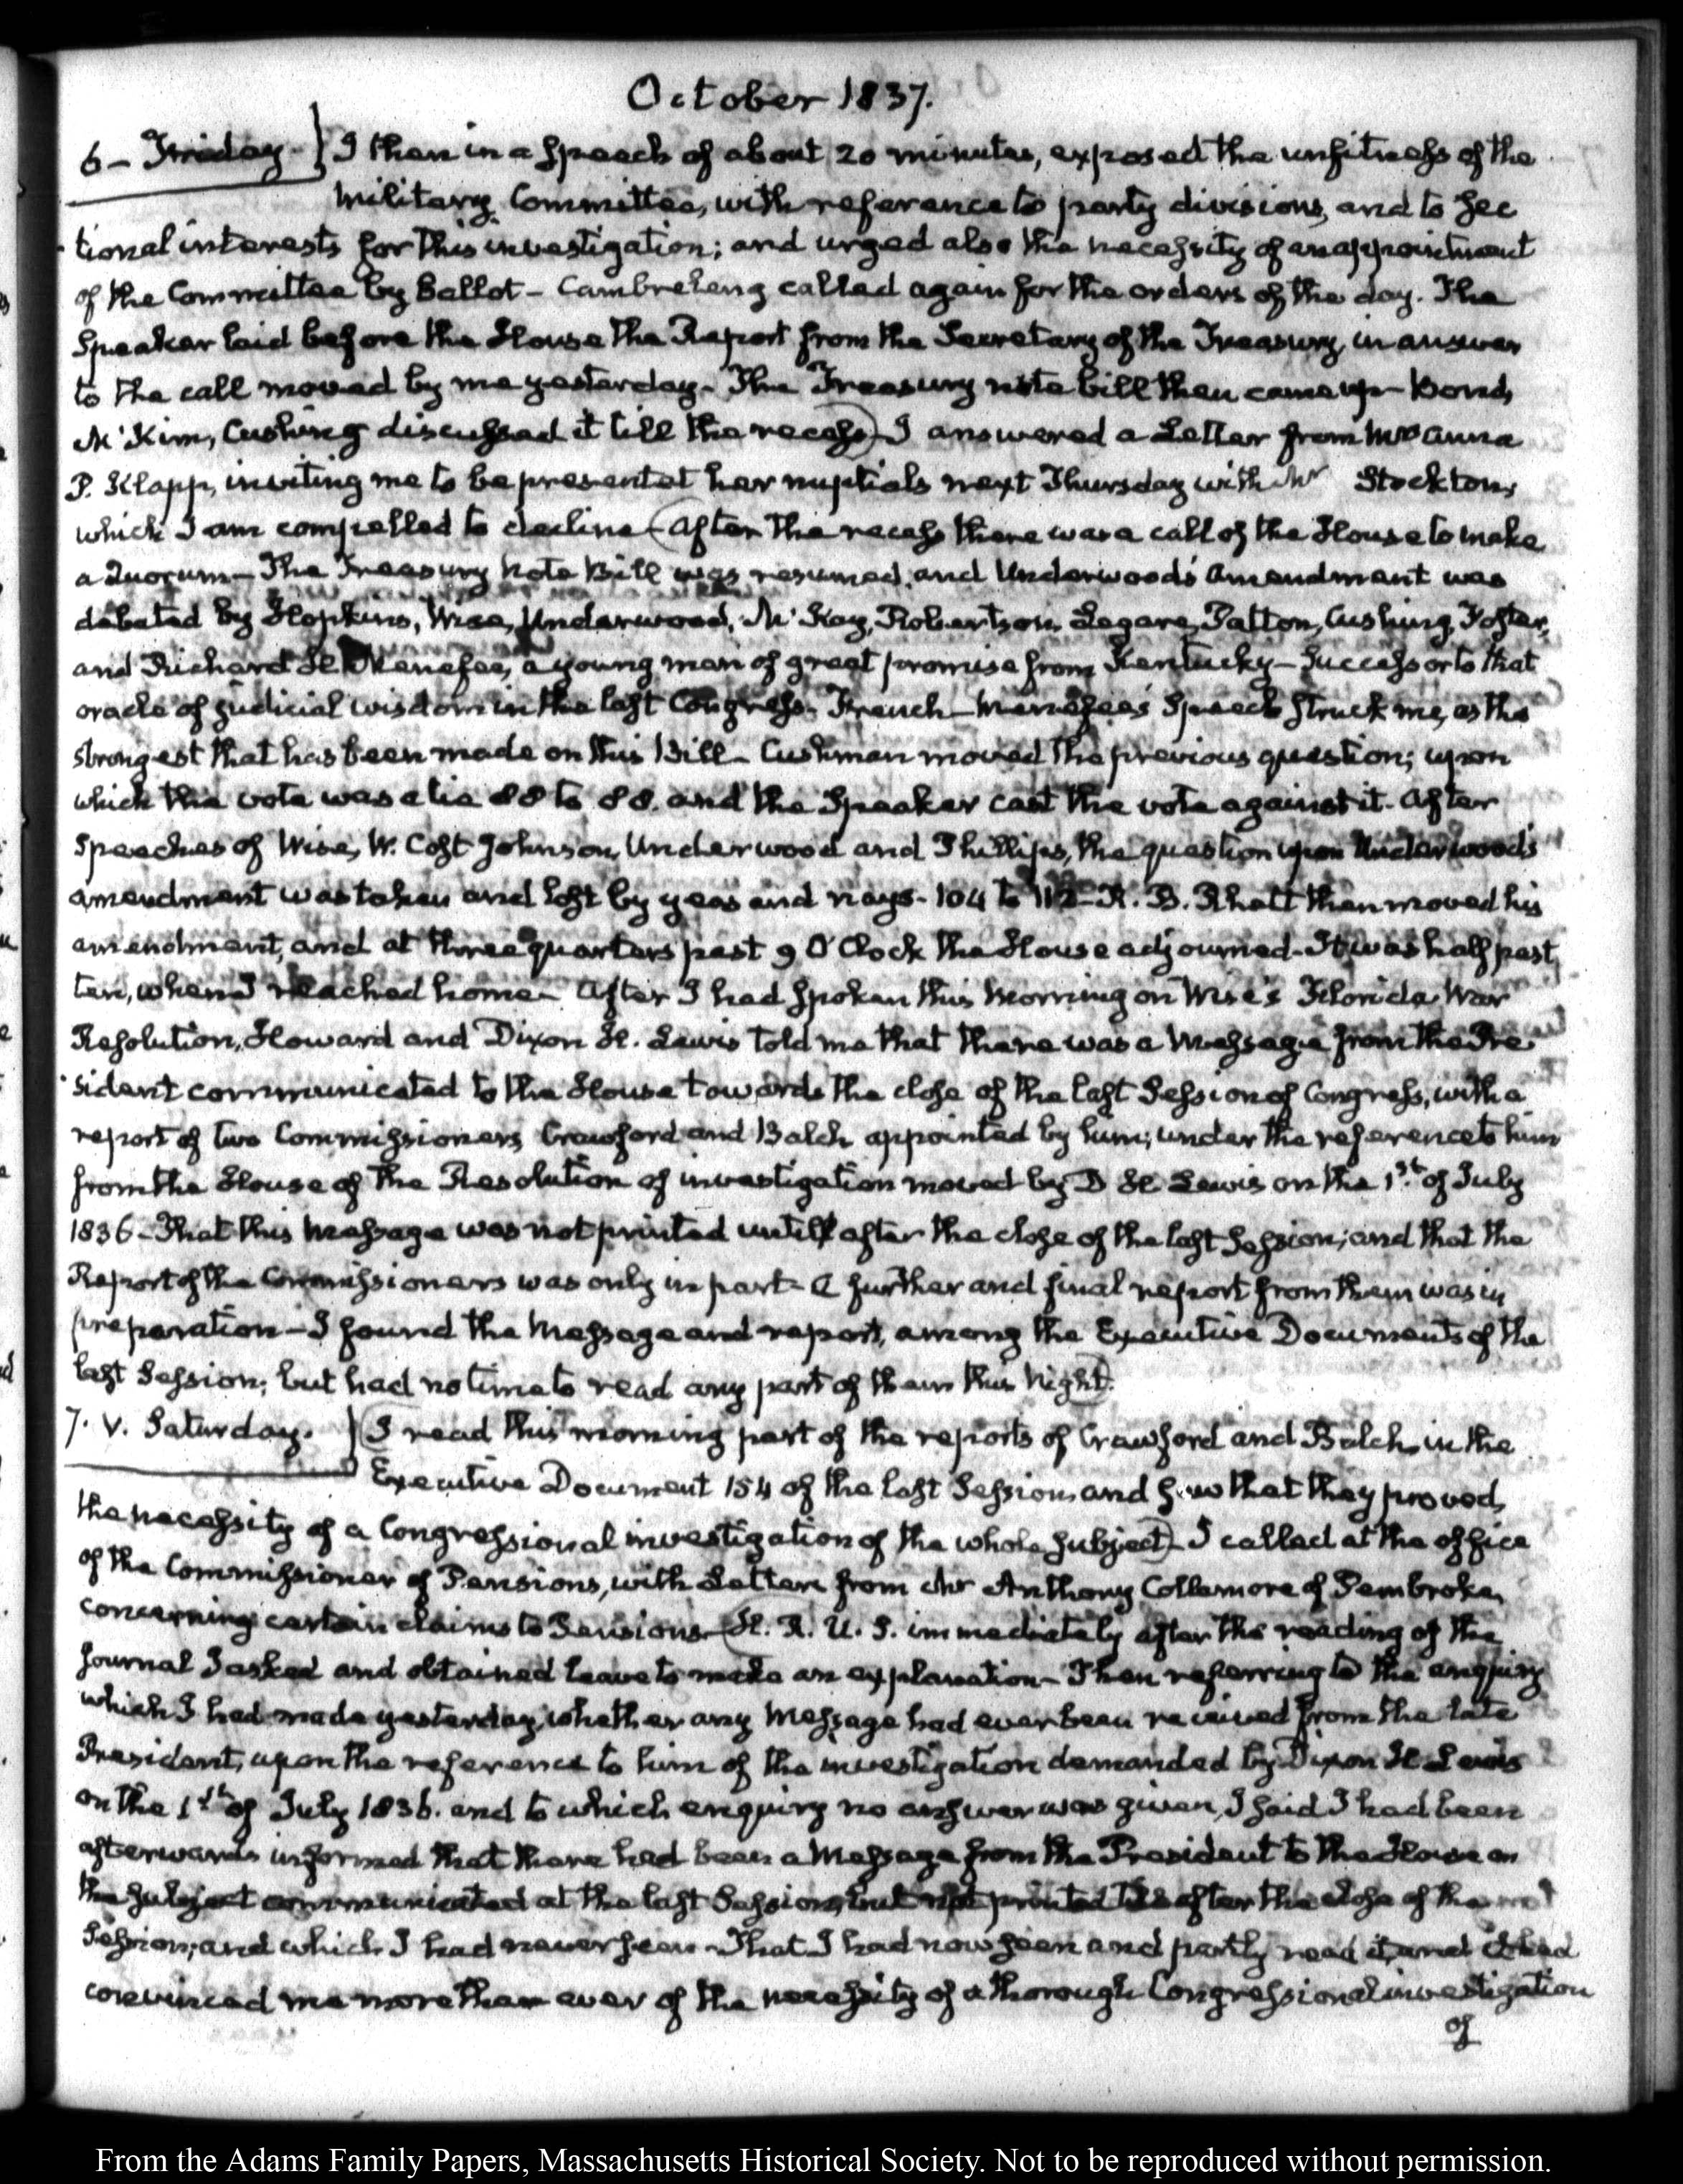 October 1837.
6 – Friday. I then in a Speech of about 20 minutes, exposed the unfitness of the
Military Committee, with reference to party divisions, and to sec
tional interests for this investigation; and urged also the necessity of an appointment
of the Committee by Ballot – Cambreleng called again for the orders of the day. The
Speaker laid before the House the Report from the Secretary of the Treasury, in answer
to the call moved by me yesterday – The Treasury note bill then came up – Bond,
McKim, Cushing discussed it till the recess) I answered a Letter from Mrs Anna
P. Klapp, inviting me to be present at her nuptials next Thursday with Mr Stockton,
which I am compelled to decline (After the recess there was a call of the House to make
a Quorum – The Treasury Note Bill was resumed, and Underwood's Amendment was
debated by Hopkins, Wise, Underwood, McKay, Robertson, Legare, Patton, Cushing, Foster,
and Richard H. Menefee, a young man of great promise from Kentucky – Successor to that
oracle of judicial wisdom in the last Congress. French – Menefee's Speech struck me, as the
strongest that has been made on this Bill – Cushman moved the previous question; upon
which the vote was a tie 88 to 88. and the Speaker cast the vote against it. After
Speeches of Wise, W. Cost Johnson, Underwood and Phillips, the question upon Underwood's
amendment was taken and lost by yeas and nays – 104 to 112 – R. B. Rhett then moved his
amendment, and at three quarters past 9 O'Clock the House adjourned – It was half past
ten, when I reached home – After I had spoken this Morning on Wise's Florida War
Resolution, Howard and Dixon H. Lewis told me that there was a Message from the Pre
sident communicated to the House towards the close of the last Session of Congress, with a
report of two Commissioners Crawford and Balch appointed by him, under the reference to him
from the House of the Resolution of investigation moved by D H Lewis on the 1st of July
1836 – That this Message was not printed untill after the close of the last Session; and that the
Report of the Commissioners was only in part – A further and final report from them was in
preparation – I found the Message and report, among the Executive Documents of the
last Session; but had no time to read any part of them this Night).
7. V. Saturday. (I read this morning part of the reports of Crawford and Balch, in the
Executive Document 154 of the last Session, and saw that they proved,
the necessity of a Congressional investigation of the whole subject) – I called at the office
of the Commissioner of Pensions, with Letters from Mr Anthony Collamore of Pembroke,
concerning certain claims to Pensions – (H. R. U. S. immediately after the reading of the
Journal I asked and obtained leave to make an explanation – Then referring to the enquiry
which I had made yesterday, whether any Message had ever been received from the late
President, upon the reference to him of the investigation demanded by Dixon H Lewis
on the 1st of July 1836. and to which enquiry no answer was given, I said I had been
afterwards informed that there had been a Message from the President to the House on
the subject communicated at the last Session, but not printed till after the close of the
Session; and which I had never seen – That I had now seen and partly read it, and it had
convinced me more than ever of the necessity of a thorough Congressional investigation
of
From the Adams Family Papers, Massachusetts Historical Society. Not to be reproduced without permission.